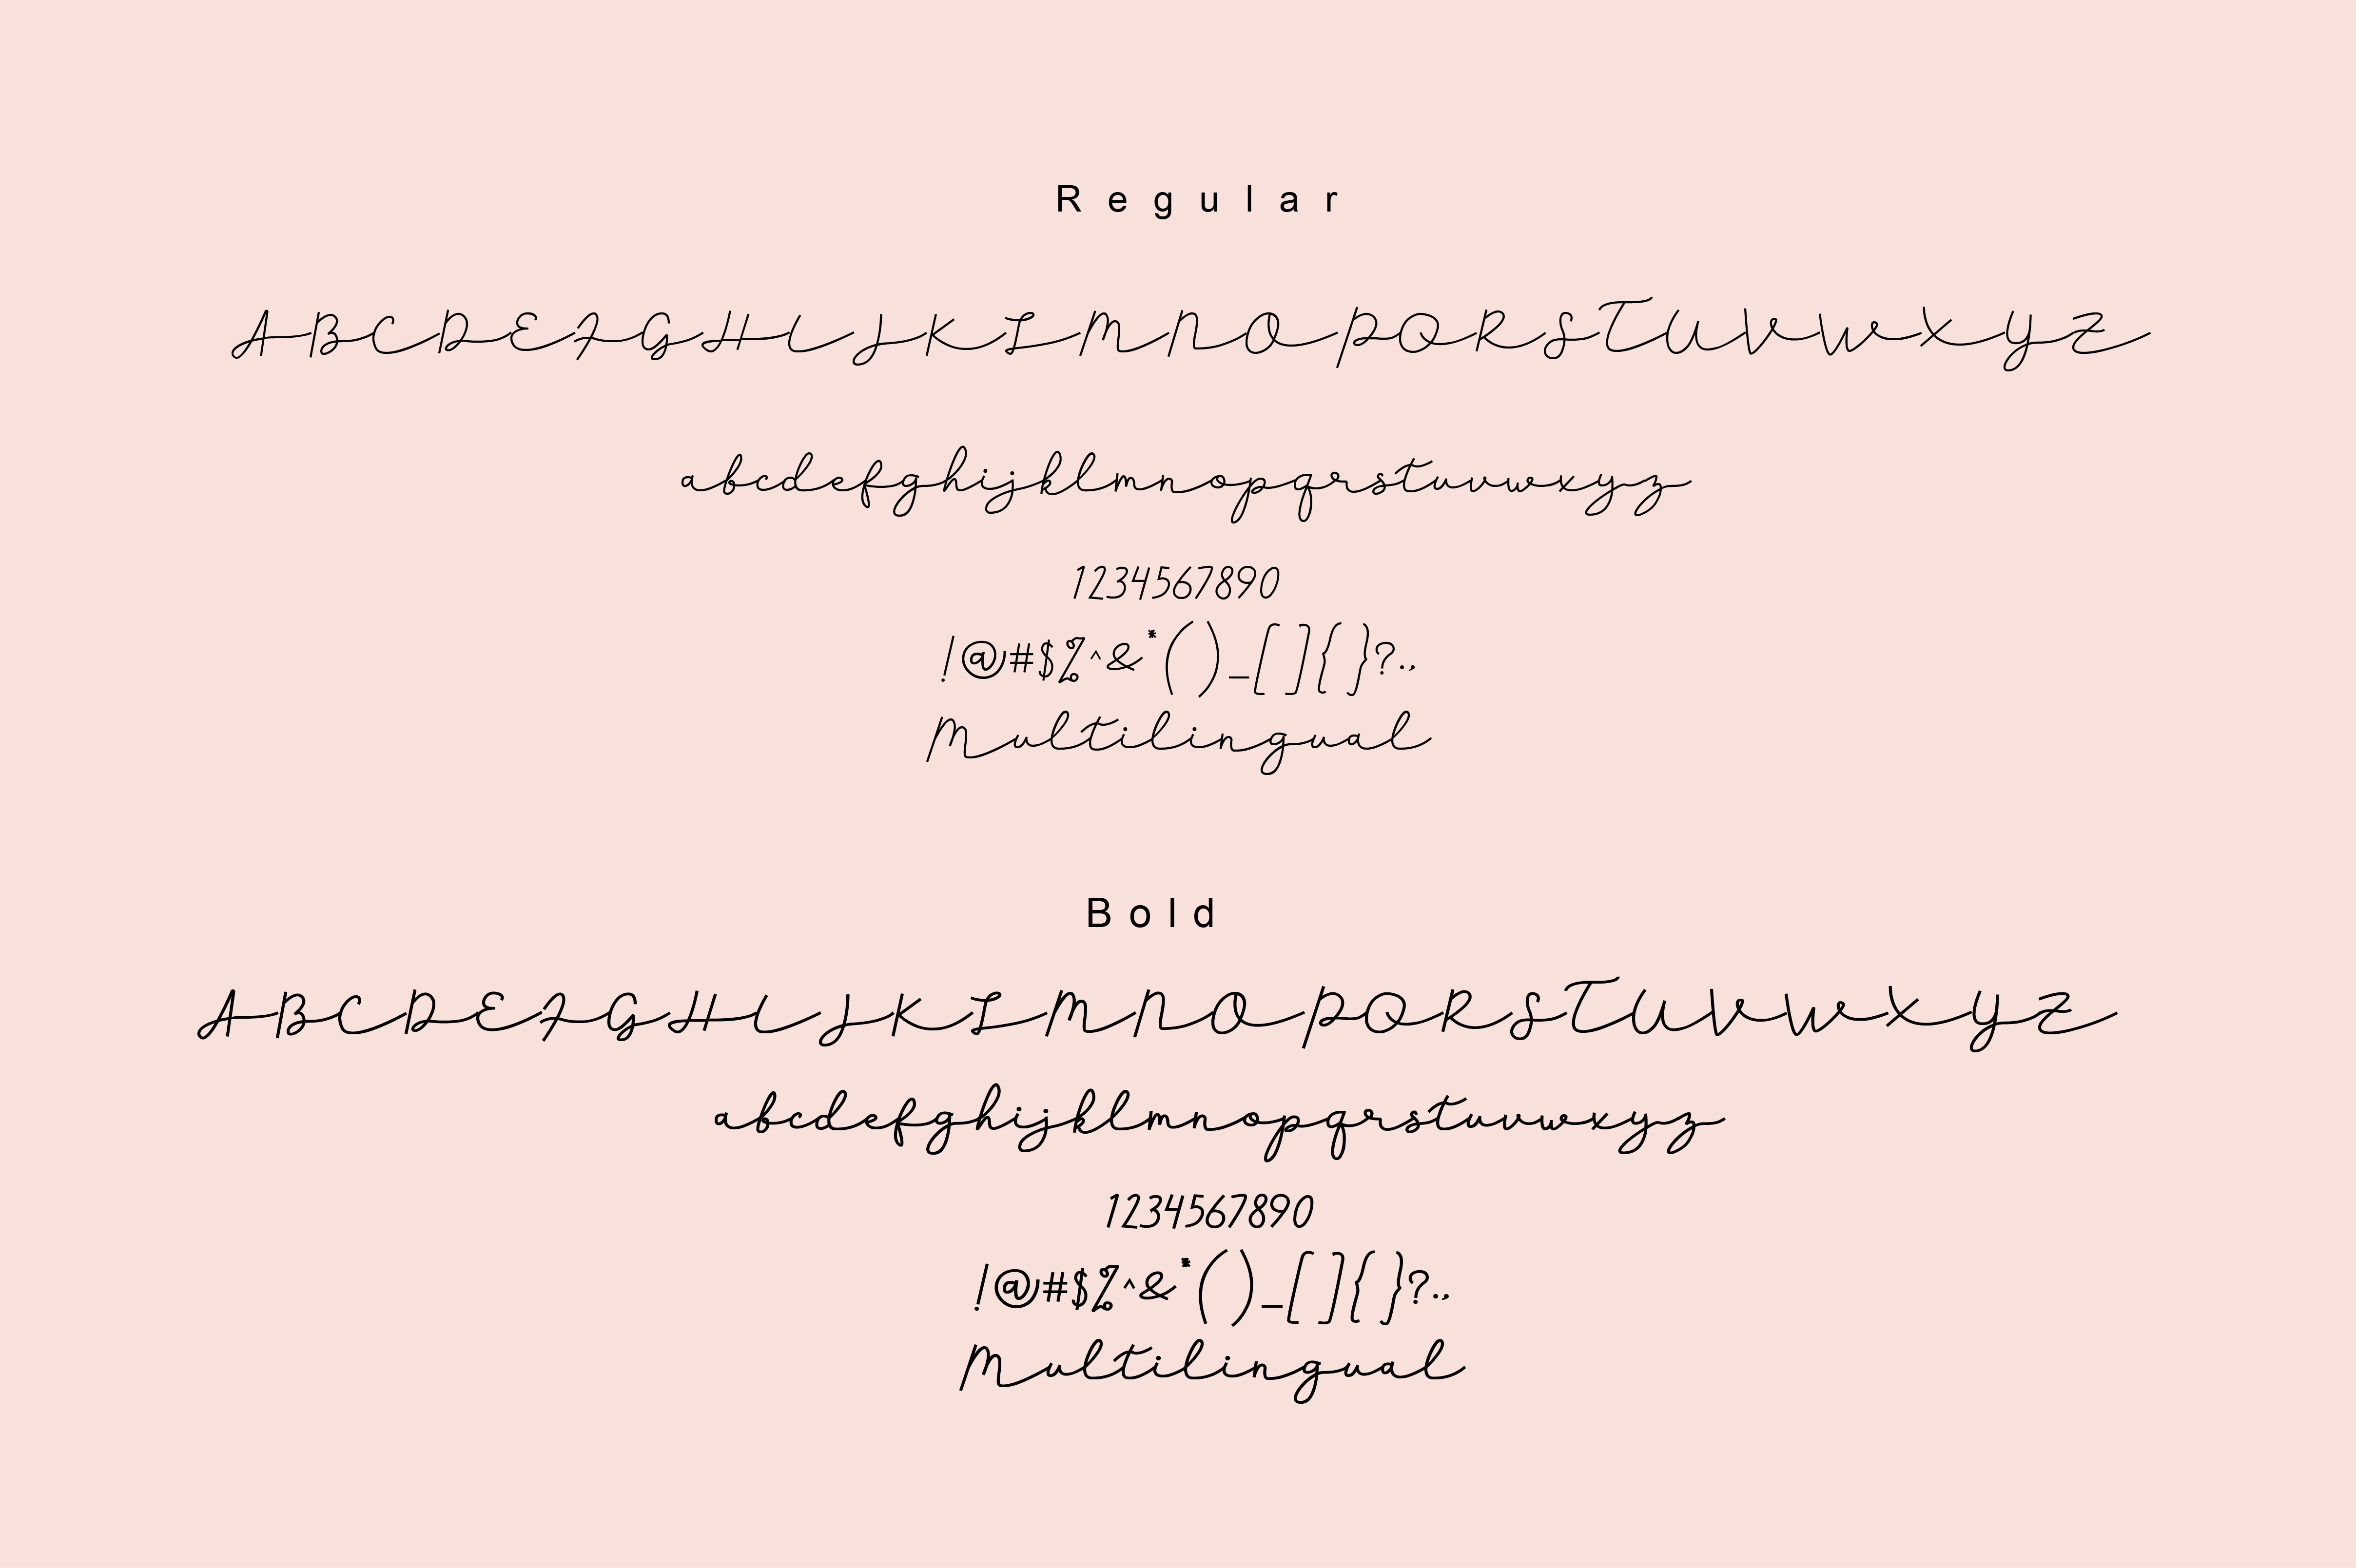 Regular
ABCDEFGHIJKLMNOPQRSTUVWXYZ
abcdefghijklmnopqrstuvwxyz
1234567890
!@#$%^&*()_[]{}?.,
Multilingual
Bold
ABCDEFGHIJKLMNOPQRSTUVWXYZ
abcdefghijklmnopqrstuvwxyz
1234567890
!@#$%^&*()_[]{}?.,
Multilingual